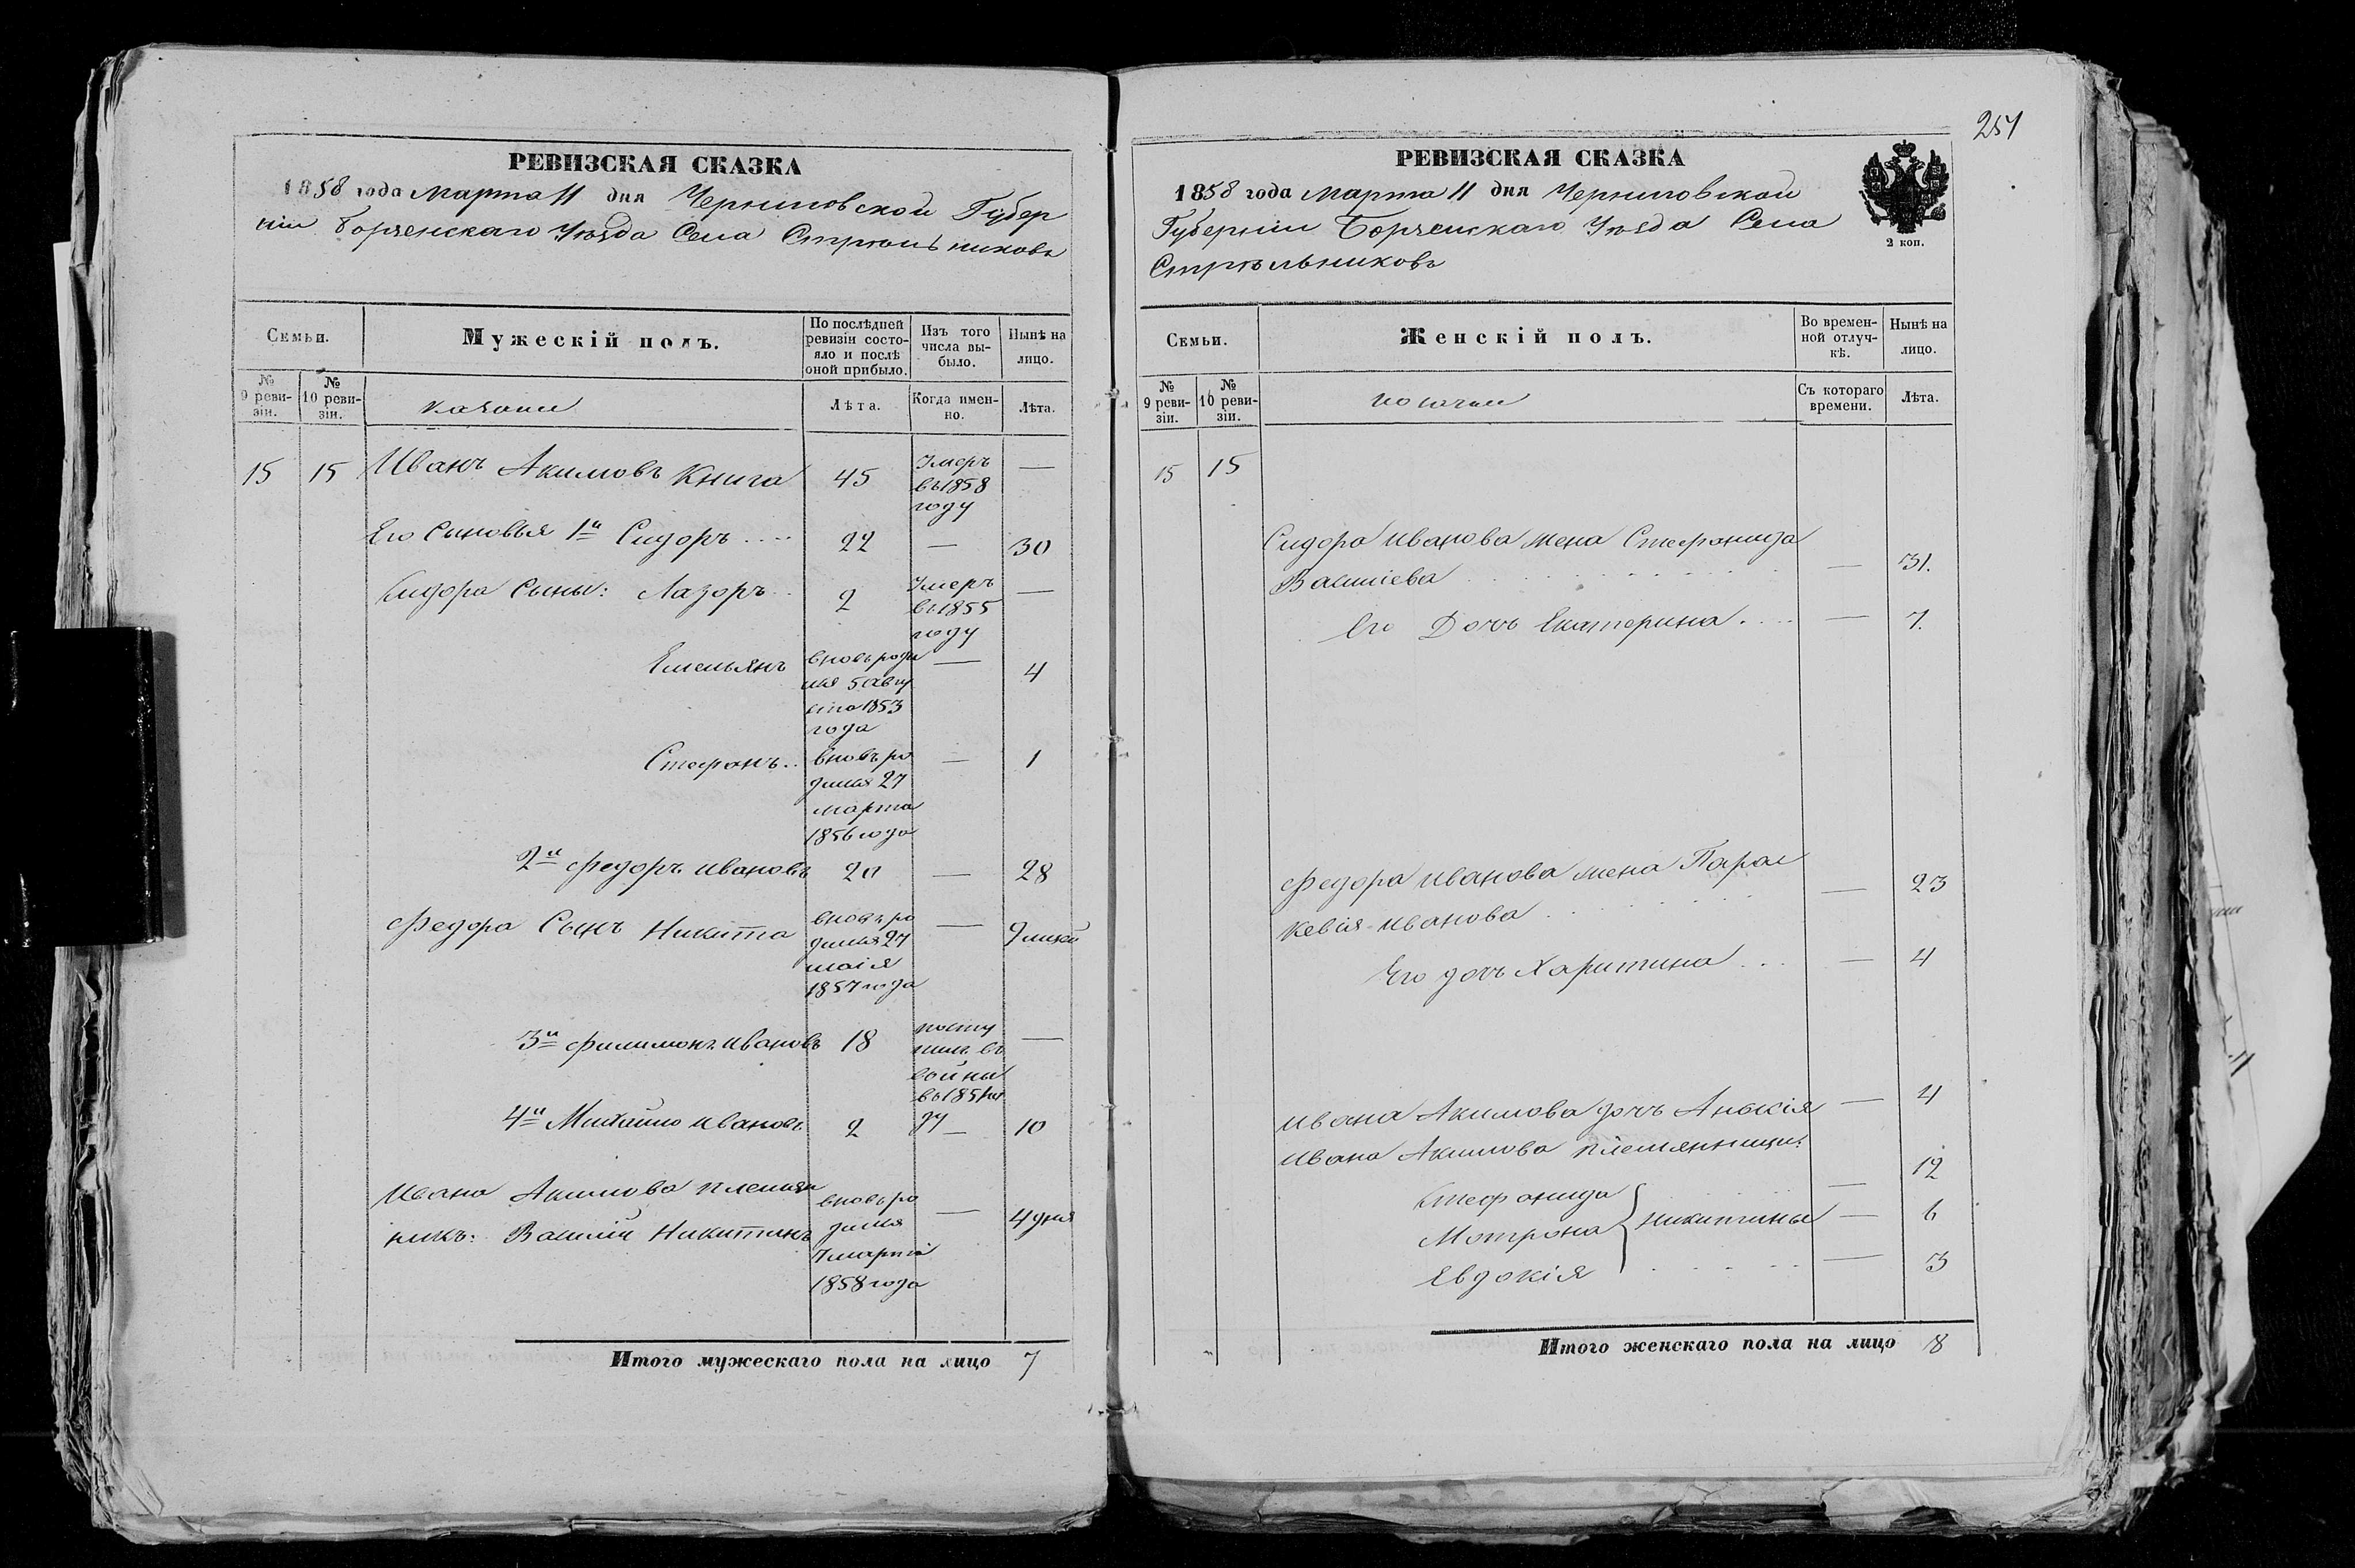 251
РЕВИЗСКАЯ СКАЗКА
1858 года Марта 11 дня Черниговской Губер
ніи Борзенскаго Уѣзда Села Стрѣльниковъ
Семьи.
Мужескій полъ.
По послѣдней ревизіи состояло и послѣ оной прибыло.
Изъ того числа выбыло.
Нынѣ на лицо.
№ 9 ревизіи.
№ 10 ревизіи.
казаки
Лѣта.
Когда именно.
Лѣта.
15 15 Иванъ Акимовъ Книга 45 Умеръ —
въ 1858
году
Его Сыновья 1й Сидоръ .... 22 — 30
Сидора Сыны: Лазоръ .. 2 Умеръ —
въ 1855
году
Емельянъ вновь роди — 4
лся 5 авгу
ста 1853
года
Стефанъ .. вновь ро — 1
дился 27
марта
1856 года
2й Федоръ Ивановъ 20 — 28
Федора Сынъ Никита вновь ро — 9 мцей
дился 27
маія
1857 года
3й Филимонъ Ивановъ 18 посту —
пилъ въ
въ 185
4й Михайло Ивановъ 2 — 10
Ивана Акимова племян вновь ро — 4 дня
никъ: Василій Никитинъ дился
7 марта
1858 года
Итого мужескаго пола на лицо 7
РЕВИЗСКАЯ СКАЗКА
1858 года Марта 11 дня Черниговской
Губерніи Борзенскаго Уѣзда Села
Стрѣльниковъ
2 коп.
Семьи.
Женскій полъ.
Во временной отлучкѣ.
Нынѣ на лицо.
№ 9 ревизіи.
№ 10 ревизіи.
Съ котораго времени.
Лѣта.
15 15
Сидора Иванова жена Стефанида
Василіева — 31.
Его Дочь Екатерина .... — 7.
Федора Иванова жена Парас
кевія Иванова — 23
Его дочь Харитина ... — 4
Ивана Акимова дочь — 4
Ивана Акимова племянницы:
Стефанида — 12
Мотрона } Никитины — 6
Евдокія — 3
Итого женскаго пола на лицо 8